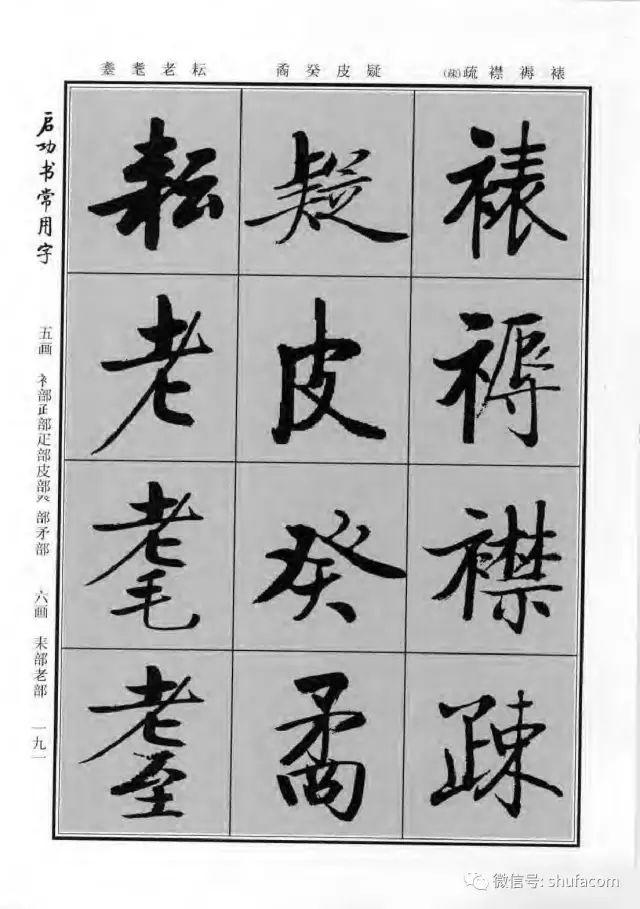 裱褥襟疏(疎)
疑皮癸矞
耘老耄耋
裱褥襟疎
疑皮癸矞
耘老耄耋
启功书常用字
五画 衤部⺪部疋部皮部癶部矛部 六画 耒部老部 一九一
微信号: shufacom